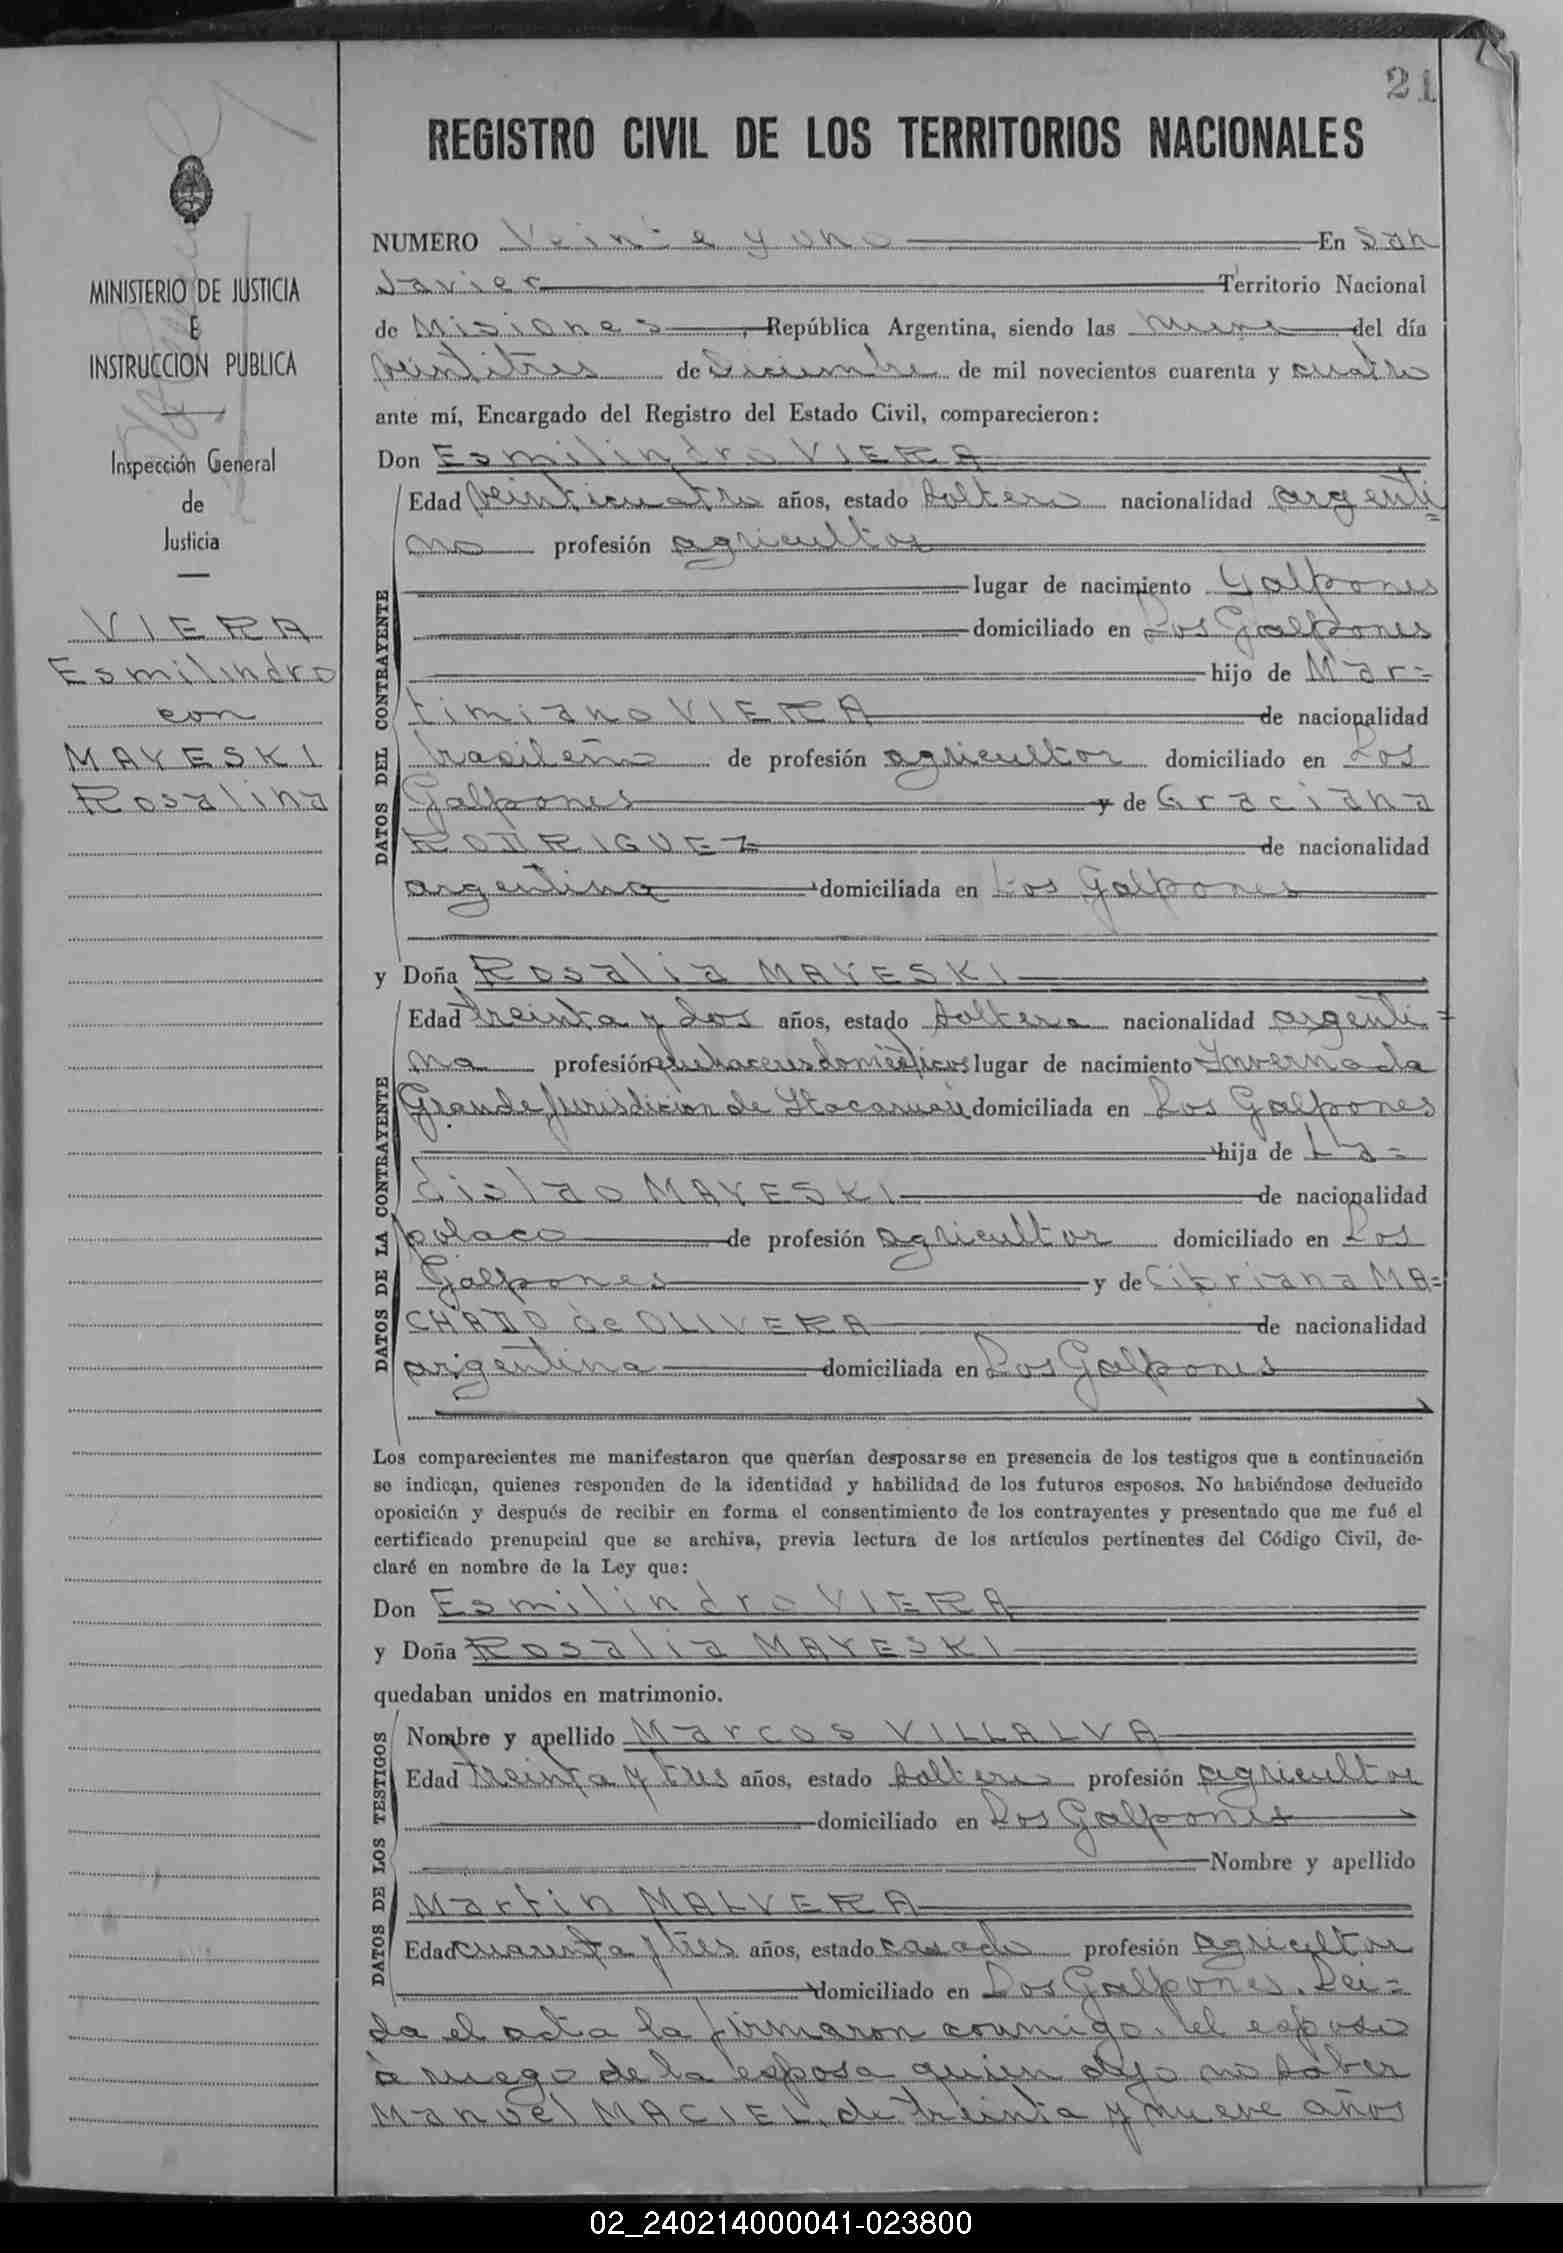 21
REGISTRO CIVIL DE LOS TERRITORIOS NACIONALES
MINISTERIO DE JUSTICIA
E
INSTRUCCION PUBLICA
Inspección General
de
Justicia
VIERA
Esmilindro
con
MAYESKI
Rosalina
NUMERO Veinte y uno En San
Javier Territorio Nacional
de Misiones, República Argentina, siendo las nueve del día
veintitres de Diciembre de mil novecientos cuarenta y cuatro
ante mí, Encargado del Registro del Estado Civil, comparecieron:
Don Esmilindro VIERA
DATOS DEL CONTRAYENTE
Edad veinticuatro años, estado soltero nacionalidad argenti=
no profesión agricultor
lugar de nacimiento Galpones
domiciliado en Los Galpones
hijo de Mar=
timiano VIERA de nacionalidad
brasileño de profesión agricultor domiciliado en Los
Galpones y de Graciana
RODRIGUEZ de nacionalidad
argentina domiciliada en Los Galpones
y Doña Rosalia MAYESKI
DATOS DE LA CONTRAYENTE
Edad treinta y dos años, estado soltera nacionalidad argenti=
na profesión quehaceres domésticos lugar de nacimiento Invernada
Grande Jurisdicion de Itacaruaré domiciliada en Los Galpones
hija de La=
dislao MAYESKI de nacionalidad
polaco de profesión agricultor domiciliado en Los
Galpones y de Cipriana MA=
CHADO de OLIVERA de nacionalidad
argentina domiciliada en Los Galpones
Los comparecientes me manifestaron que querían desposarse en presencia de los testigos que a continuación
se indican, quienes responden de la identidad y habilidad de los futuros esposos. No habiéndose deducido
oposición y después de recibir en forma el consentimiento de los contrayentes y presentado que me fué el
certificado prenupcial que se archiva, previa lectura de los artículos pertinentes del Código Civil, de-
claré en nombre de la Ley que:
Don Esmilindro VIERA
y Doña Rosalia MAYESKI
quedaban unidos en matrimonio.
DATOS DE LOS TESTIGOS
Nombre y apellido Marcos VILLALVA
Edad treinta y tres años, estado soltero profesión agricultor
domiciliado en Los Galpones
Nombre y apellido
Martin MALVERA
Edad cuarenta y tres años, estado casado profesión agricultor
domiciliado en Los Galpones. Lei=
da el acta la firmaron conmigo, el esposo
á ruego de la esposa quien dijo no saber
Manuel MACIEL, de treinta y nueve años
02_240214000041-023800